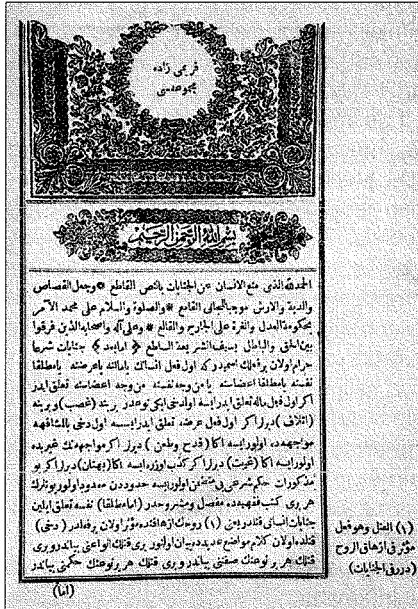 قریمی زاده
مجموعه‌سی
بسم الله الرحمن الرحیم
الحمدلله الذی منع الانسان عن الجنایات بالنص القاطع * وجعل القصاص
والدیة والارش موجبا للجانی القامع * والصلوة والسلام علی محمد الآمر
بحکومة العدل والغرة علی الجارح والقالع * وعلی آله واصحابه الذین فرقوا
بین الحق والباطل بسیف الشرع الساطع ﴿ امابعد ﴾ جنایات شرعا
حرام اولان بر فعلك اسمیدرکه اول فعل انسانك یا مالنه یا عرضنه یا
نفسنه یا مطلقا اعضاسنه یا من وجه نفسنه من وجه اعضاسنه تعلق ایدر
اکر اول فعل ماله تعلق ایدر ایسه اولدخی ایکی نوعدر برینه (غصب) و برینه
(اتلاف) دیرز اکر اول فعل عرضه تعلق ایدر ایسه اول دخی بالمشافهه
مواجهه‌ده اولور ایسه اکا (قدح وطعن) دیرز اکر مواجهه‌نك غیریده
اولور ایسه اکا (غیبت) دیرز اکر کذب اوزره ایسه اکا (بهتان) دیرز اکر بو
مذکورات حکم شرعی‌یی اولور ایسه حدوددن معدود اولور بونلرك
هر بری کتب فقهیه‌ده مفصل ومشروحدر (اما مطلقا) نفسه تعلق ایلین
جنایات انسانی قتلدر یعنی (۱) روحك ازهاقنده مؤثر اولان بر فعلدر (دخی)
قتلده اولان کلام مواضع عدیده‌ده بیان اولنور بری قتلك انواعنی بیاندر و بری
قتلك هر بر نوعنك صفتنی بیاندر و بری قتلك هر بر نوعنك حکمنی بیاندر
(اما)
(۱) القتل وهو فعل
مؤثر فی ازهاق الروح
(درر فی الجنایات)